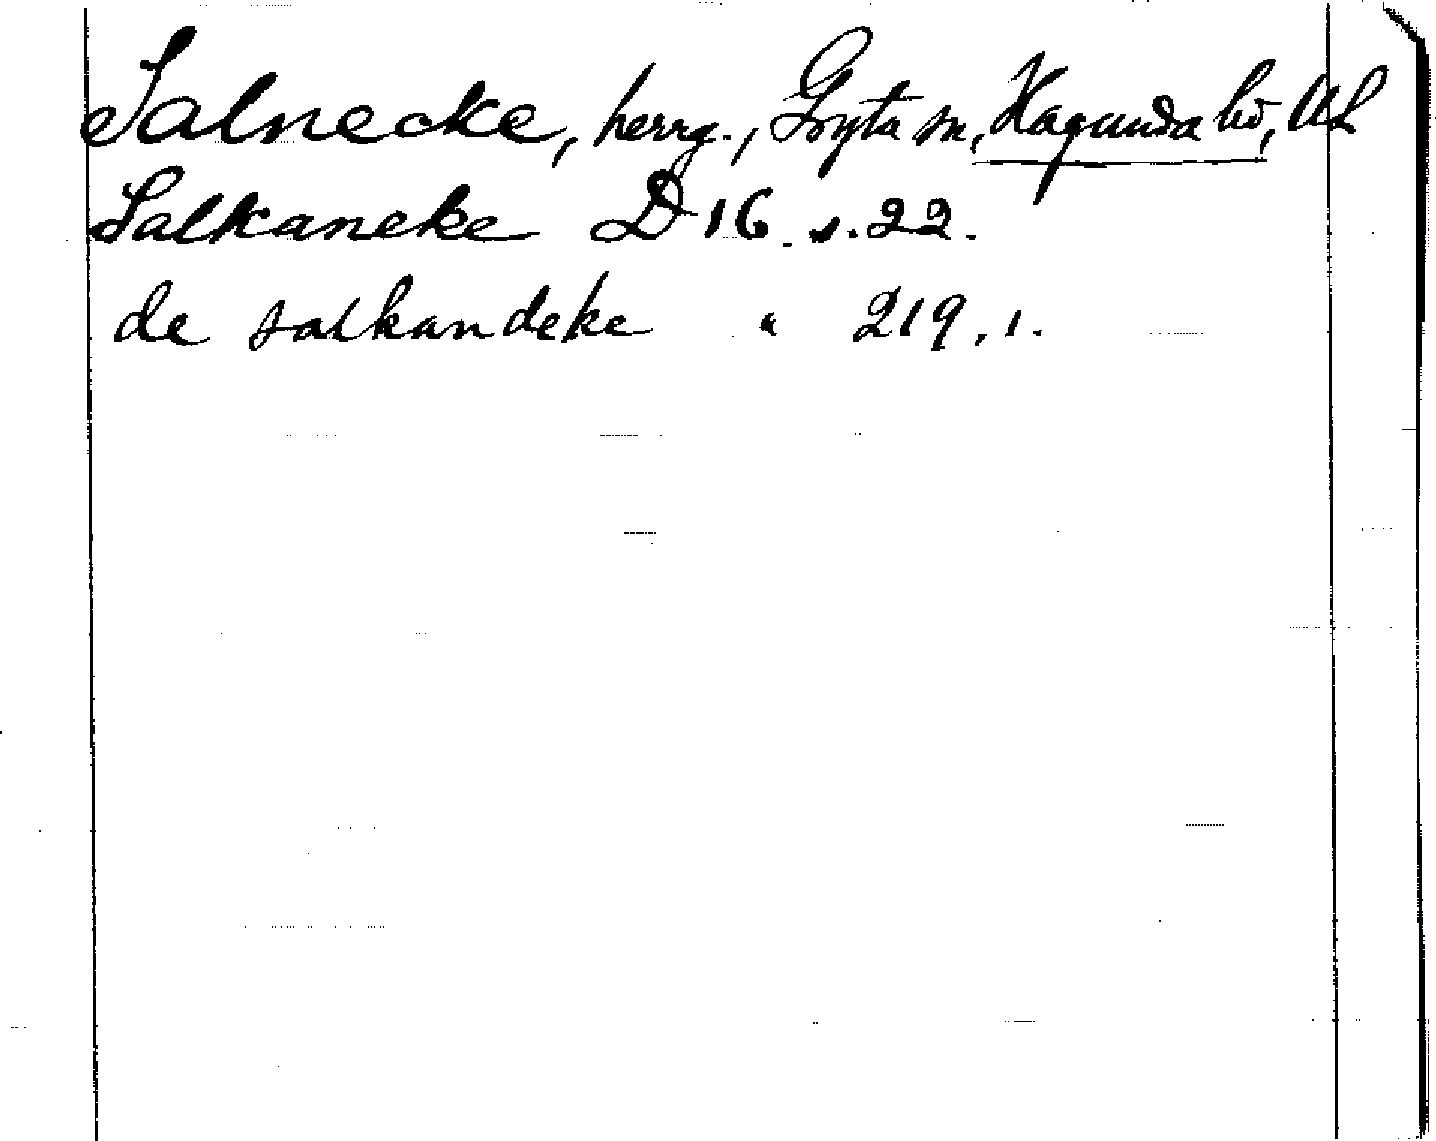 Salnecke, herrg., Gryta sn, Hagunda hd, Upl
Salkaneke D 16 s. 22.
de salkandeke " 219, 1.